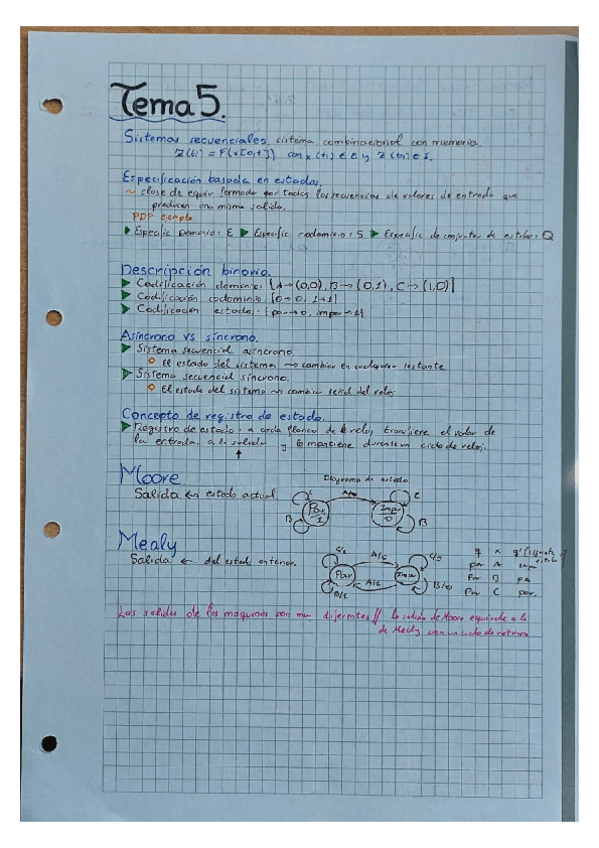 Tema 5.
Sistemas secuenciales, sistema combinacional con memoria.
Z(ti) = F(x[0,t]) con x(ti) ∈ E y Z(ti) ∈ S.
Especificación basada en estados.
~ clase de equiv formado por todas las secuencias de valores de entrada que
producen una misma salida.
PDP ejemplo.
Especific Dominio: E Especific codominio: S Especific de conjunto de estados: Q
Descripción binario.
Codificación dominio: {A→(0,0), B→(0,1), C→(1,0)}
Codificación codominio: {0→0, 1→1}
Codificación estado: {par→0, impar→1}
Asíncrono vs síncrono.
Sistema secuencial asíncrono.
El estado del sistema ~ cambiar en cualquier instante
Sistema secuencial síncrono.
El estado del sistema ~ cambia señal del reloj
Concepto de registro de estado.
Registro de estado: a cada flanco de reloj transfiere el valor de
la entrada a la salida y lo mantiene durante un ciclo de reloj.
Moore
Diagrama de estado
Salida ← estado actual.
C A C
Par 1 Imp 0
B B
Mealy
Salida ← del estado anterior.
Par Imp
B/0
q x
par A impar
Par B pa
Par C par.
Las salidas de las maquinas son muy diferentes // la salida de Moore equivale a la
de Mealy con un ciclo de retraso